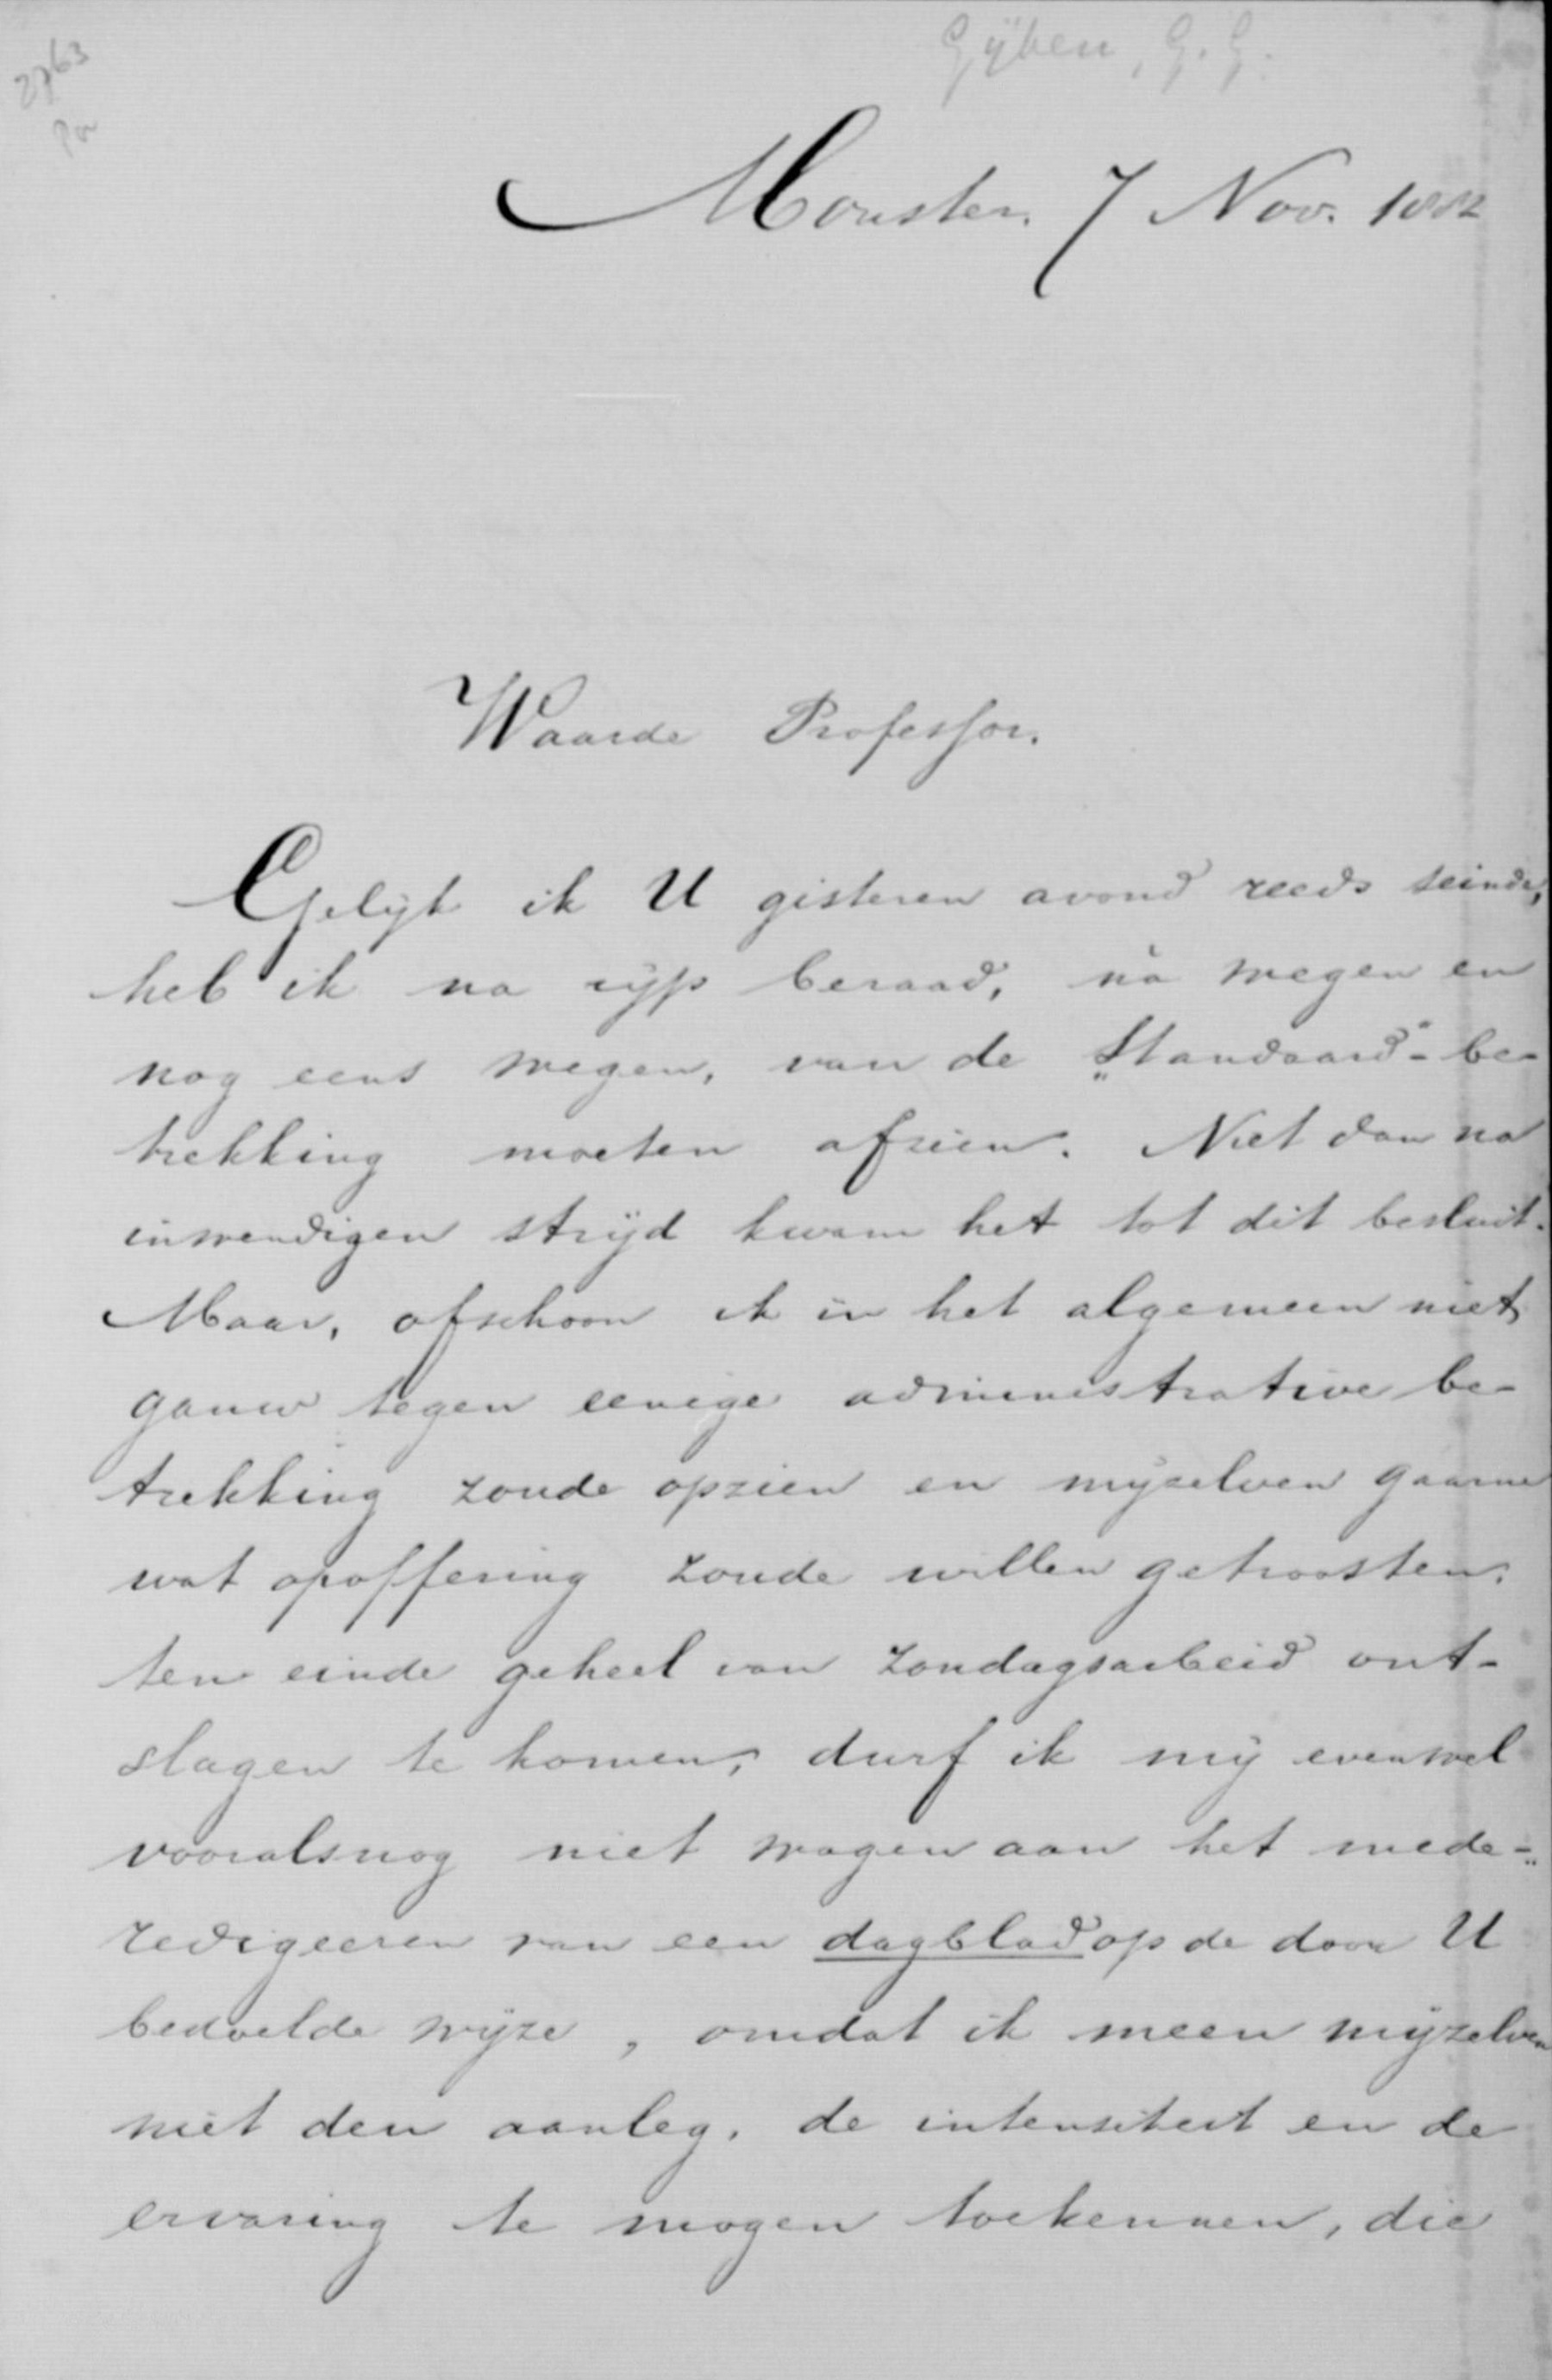 2763
Gijben, G. G.
Monster. 7 Nov. 1882
Waarde Professor.
Gelijk ik U gisteren avond reeds seinde,
heb ik na rijp beraad, nà wegen en
nog eens wegen, van de „Standaard"-be-
trekking moeten afzien. Niet dan na
inwendigen strijd kwam het tot dit besluit.
Maar, ofschoon ik in het algemeen niet
gauw tegen eenige administrative be-
trekking zoude opzien en mijzelven gaarne
wat opoffering zoude willen getroosten,
ten einde geheel van Zondagsarbeid ont-
slagen te komen, durf ik mij evenwel
vooralsnog niet wagen aan het mede-
redigeeren van een dagblad op de door U
bedoelde wijze, omdat ik meen mijzelven
niet den aanleg, de intensiteit en de
ervaring te mogen toekennen, die